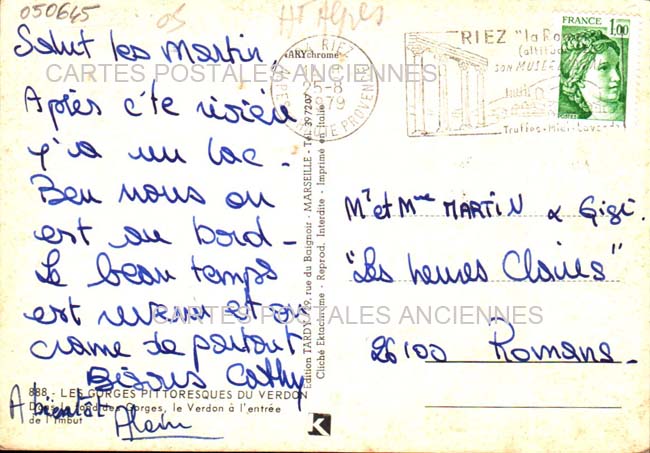 050645
05
Ht Alpes
Salut les Martin,
CARTES POSTALES ANCIENNES
Après c'te rivière
y'a un lac -
Ben nous on
est au bord -
Le beau temps
est revenu et on
CARTES POSTALES ANCIENNES
crame de partout
Bisous Cathy
888 - LES GORGES PITTORESQUES DU VERDON
Dans le fond des Gorges, le Verdon à l'entrée
de l'Imbut
A bientôt
Alain
Edition TARDY - 29, rue du Baignoir - MARSEILLE - Tél. 397207
Cliché Ektachrome - Reprod. Interdite - Imprimé en Italie
"ARYchrome"
RIEZ
25-8
1979
ALPES DE HAUTE PROVENCE
RIEZ "la Romaine"
(altitude
SON MUSÉE
Truffes-Miel-Lavande
FRANCE
1,00
POSTES
Mr et Mme MARTIN & Gigi
"Les heures Claires"
26100 Romans -
K